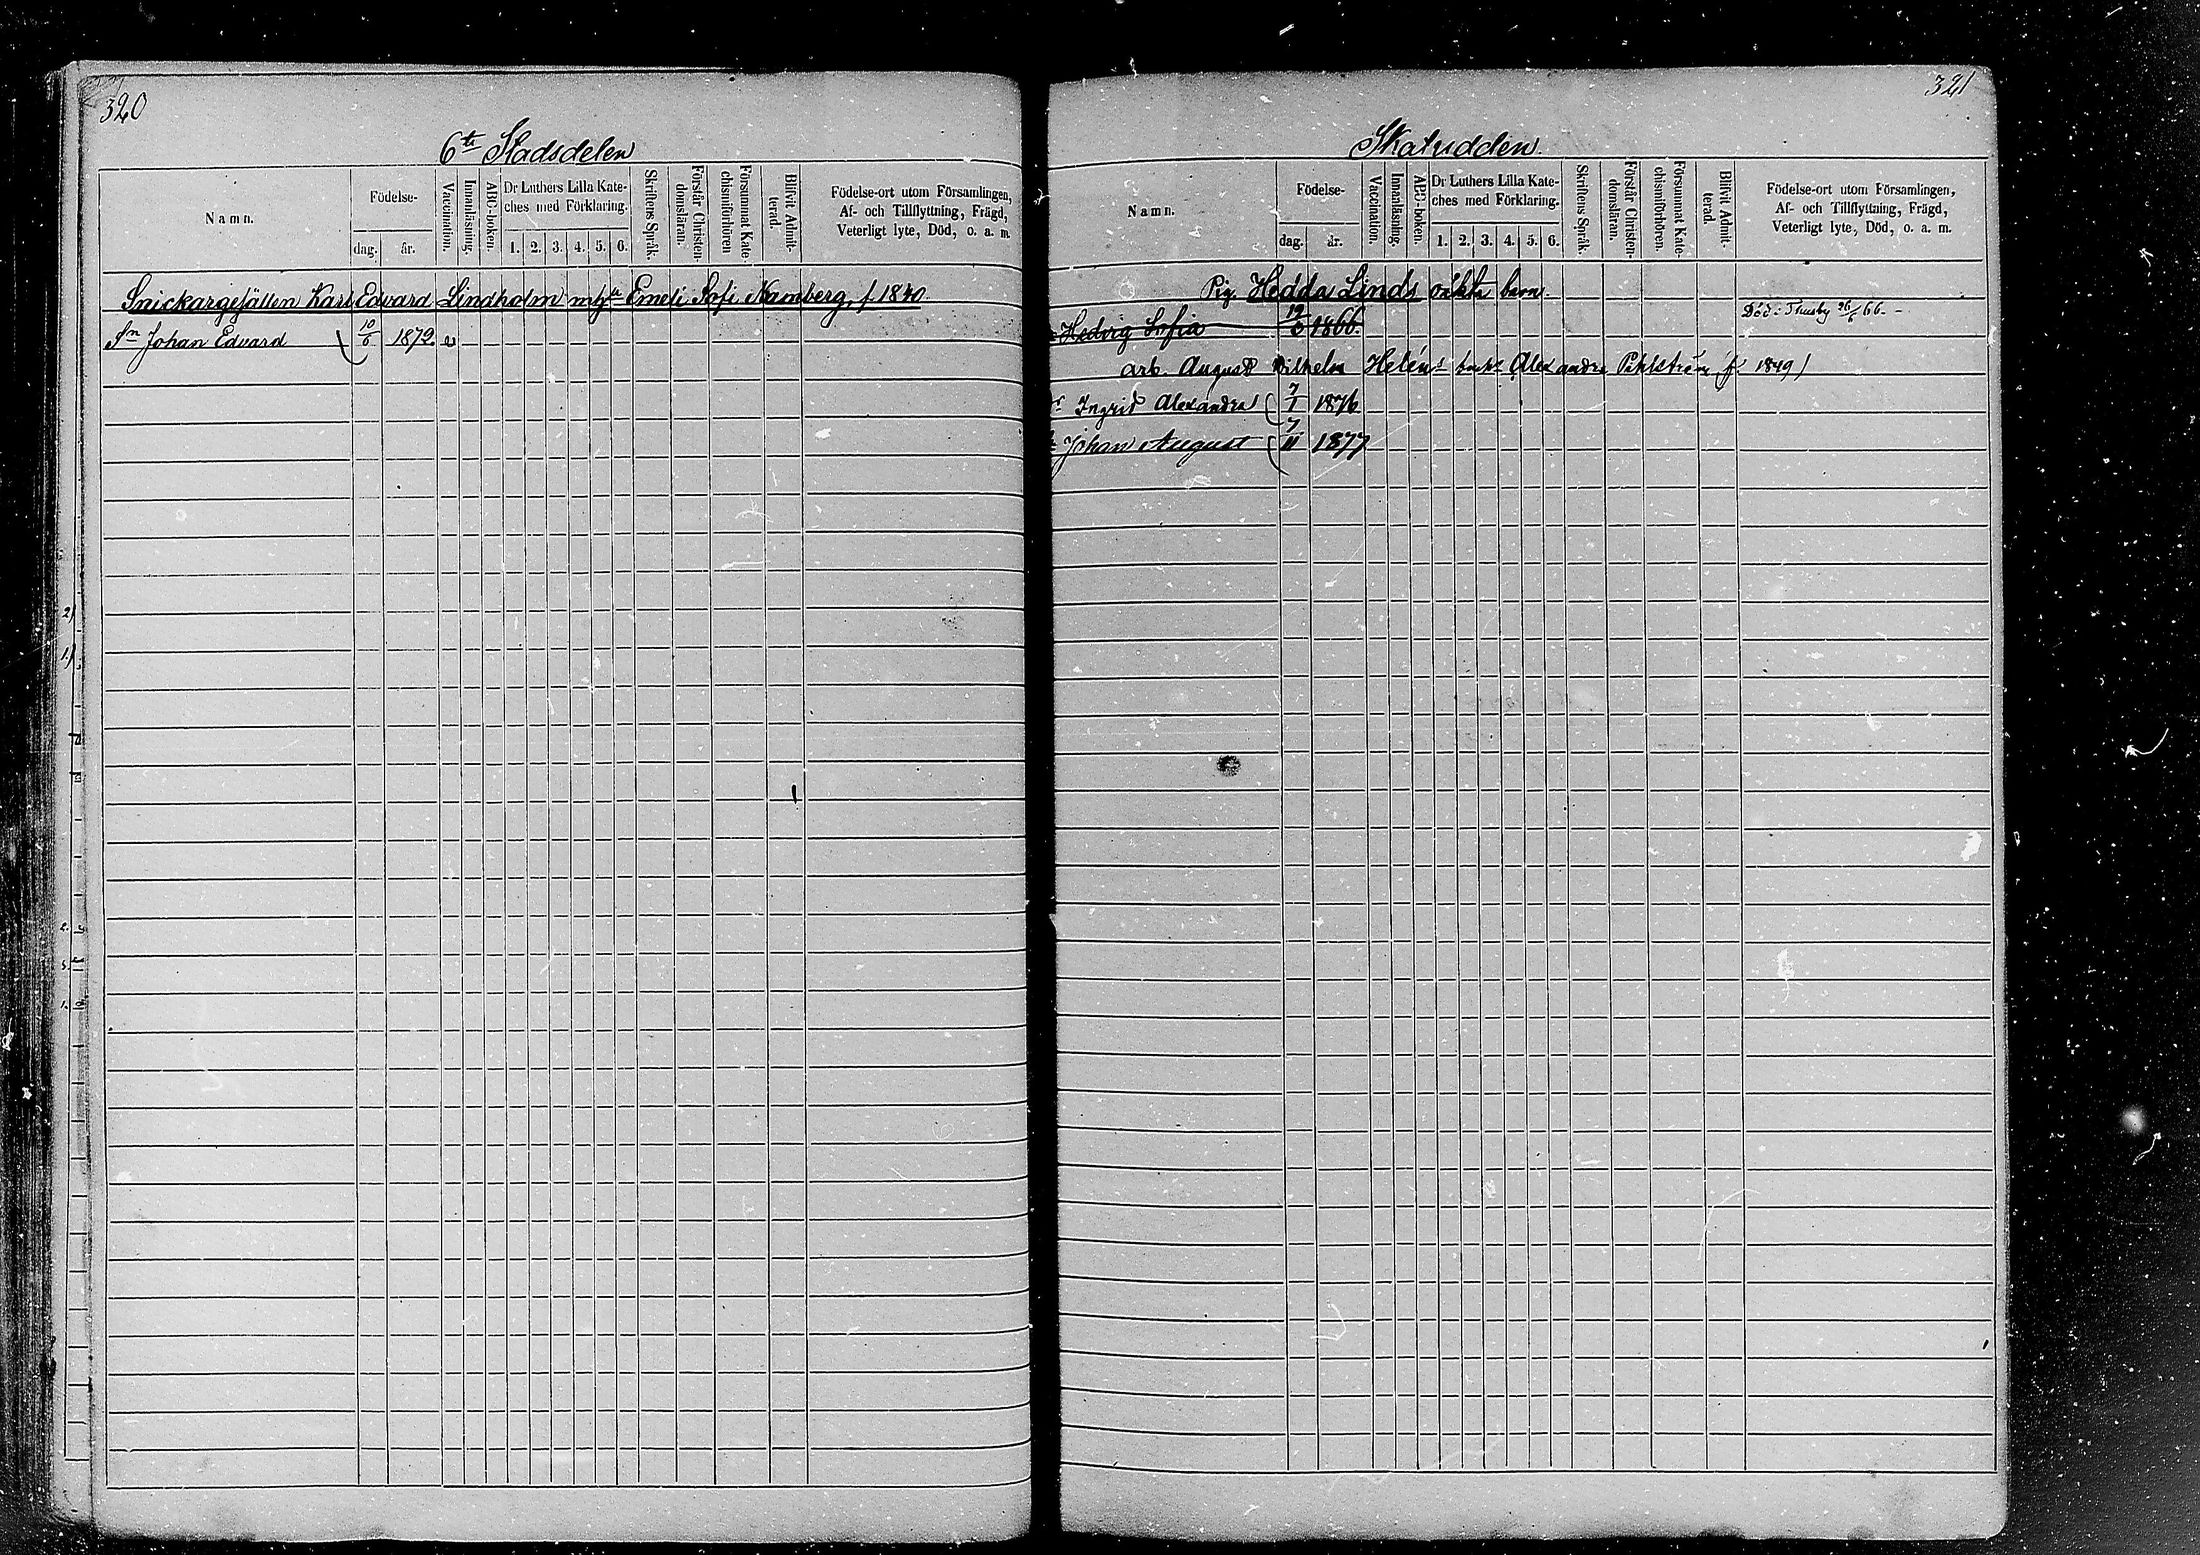 320
6te Stadsdelen
Namn.
Födelse-
dag.
år.
Vaccination.
Innanläsning.
ABC-boken.
Dr Luthers Lilla Kate-
ches med Förklaring.
1. 2. 3. 4. 5. 6.
Skriftens Språk.
Förstår Christen-
domsläran.
Försummat Kate-
chismiförhören
Blifvit Admit-
terad.
Födelse-ort utom Församlingen,
Af- och Tillflyttning, Frägd,
Veterligt lyte, Död, o. a. m.
Snickargesällen Karl Edvard Lindholm Emeli Sofi Namberg, f 1840.
Sn Johan Edvard 10/6 1872 v
321
Skatudden.
Namn.
Födelse-
dag.
år.
Vaccination.
Innanläsning.
ABC-boken.
Dr Luthers Lilla Kate-
ches med Förklaring.
1. 2. 3. 4. 5. 6.
Skriftens Språk.
Förstår Christen-
domsläran.
Försummat Kate-
chismiförhören.
Blifvit Admit-
terad.
Födelse-ort utom Församlingen,
Af- och Tillflyttning, Frägd,
Veterligt lyte, Död, o. a. m.
Pig. Hedda Linds oäkta barn.
Hedvig Sofia 1866 Död i Thusby 26/6 66.
arb. August Wilhelm Heléns Alexandra Pihlström (f. 1849)
Ingrid Alexandra 7/1 1876
Johan August 7/11 1877